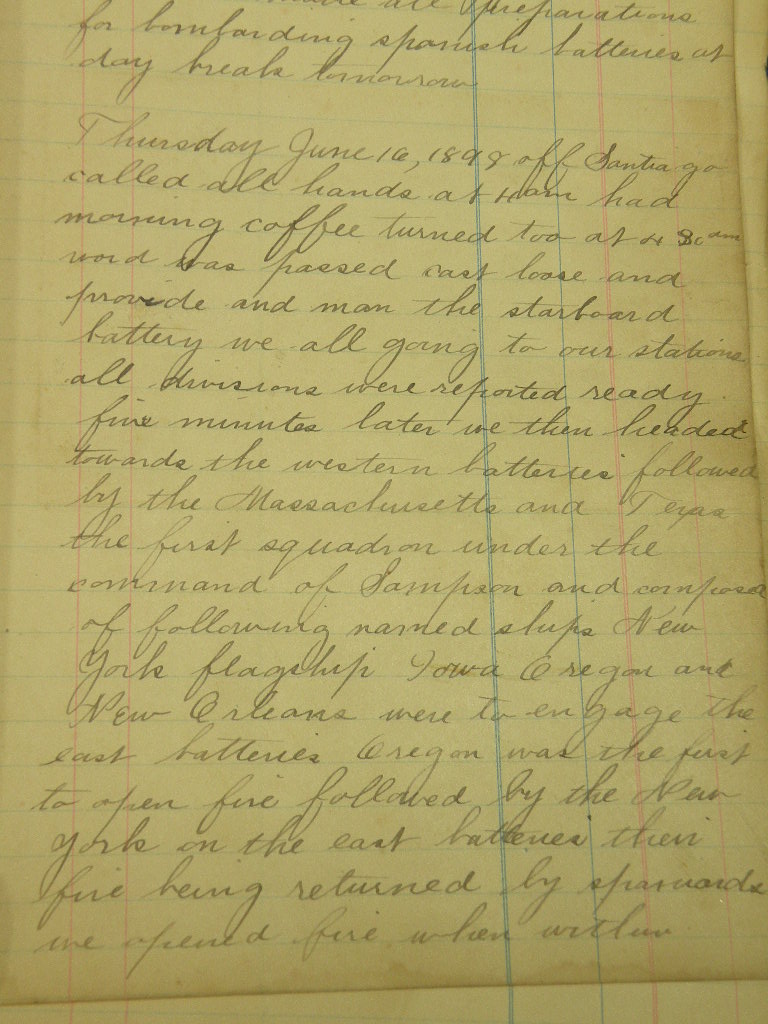 made all preparations
for bombarding spanish batteries at
day break tomorrow
Thursday June 16, 1898 off Santiago
called all hands at 4 am had
morning coffee turned too at 4 30 am
word was passed cast loose and
provide and man the starboard
battery we all going to our stations
all divisions were reported ready
five minutes later we then headed
towards the western batteries followed
by the Massachusetts and Texas
the first squadron under the
command of Sampson and composed
of following named ships New
York flagship Iowa Oregon and
New Orleans were to engage the
east batteries Oregon was the first
to open fire followed by the New
York on the east batteries their
fire being returned by spaniards
we opened fire when within